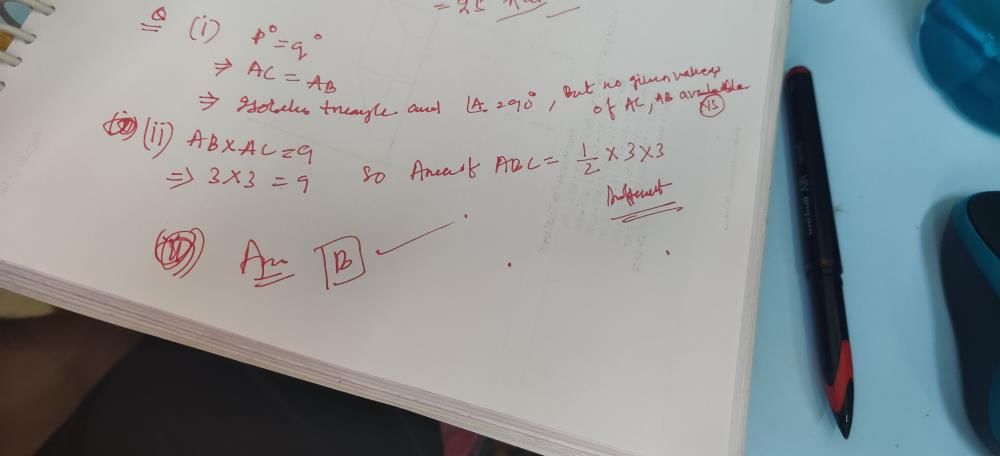 = 25
Q (i) p° = q°
⇒ AC = AB
⇒ Isosceles triangle and ∠A = 90°, But no given values of AC, AB available
(ii) AB × AC = 9
⇒ 3 × 3 = 9 So Area of ABC = 1/2 × 3 × 3
Sufficient
Ans B ✓